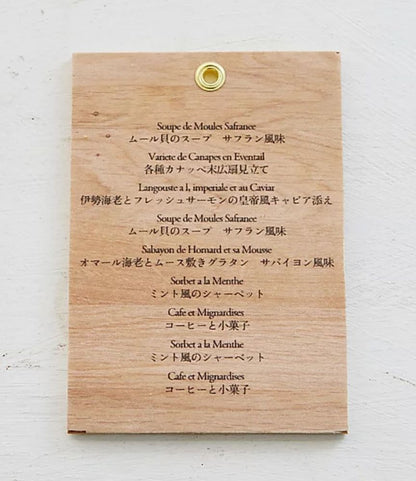 Soupe de Moules Safranee
ムール貝のスープ　サフラン風味
Variete de Canapes en Eventail
各種カナッペ末広扇見立て
Langouste a l, imperiale et au Caviar
伊勢海老とフレッシュサーモンの皇帝風キャビア添え
Soupe de Moules Safranee
ムール貝のスープ　サフラン風味
Sabayon de Homard et sa Mousse
オマール海老とムース敷きグラタン　サバイヨン風味
Sorbet a la Menthe
ミント風のシャーベット
Cafe et Mignardises
コーヒーと小菓子
Sorbet a la Menthe
ミント風のシャーベット
Cafe et Mignardises
コーヒーと小菓子